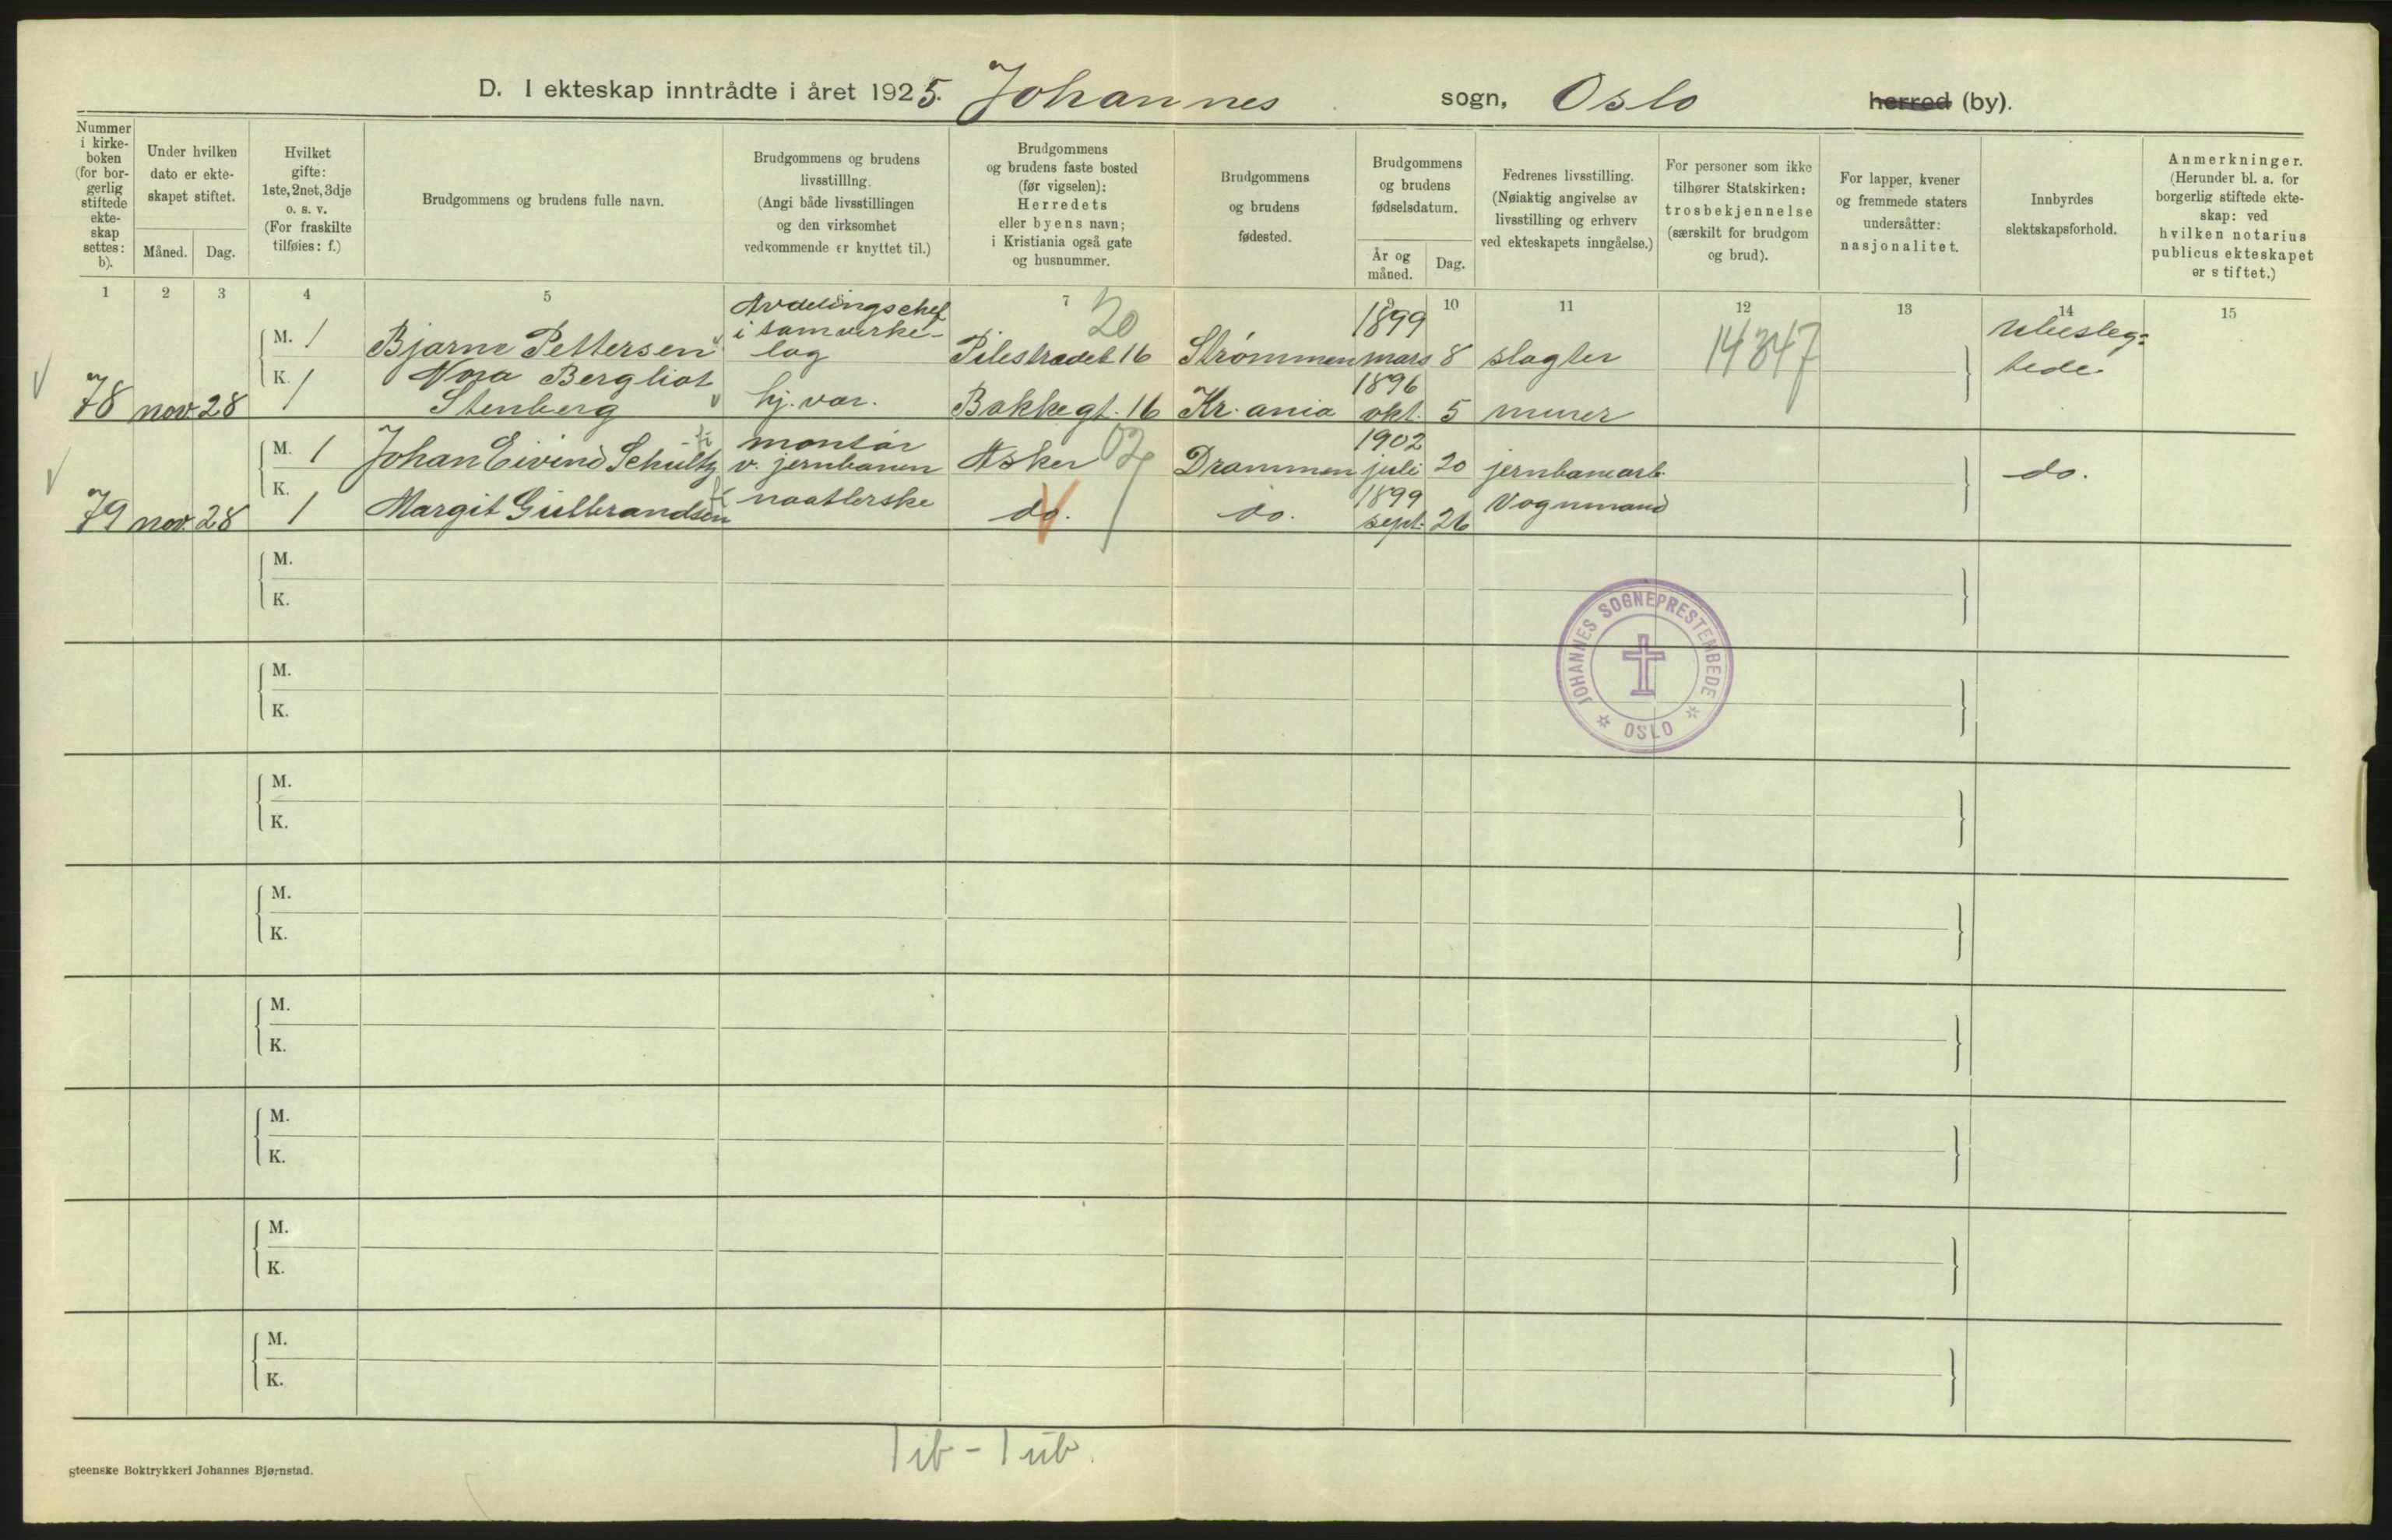 D. I ekteskap inntrådte i året 1925. Johannes sogn, Oslo herred (by).
Nummer
i kirke-
boken
(for bor-
gerlig
stiftede
ekte-
skap
settes:
b).
Under hvilken
dato er ekte-
skapet stiftet.
Måned. Dag.
Hvilket
gifte:
1ste, 2net, 3dje
o. s. v.
(For fraskilte
tilføies: f.)
Brudgommens og brudens fulle navn.
Brudgommens og brudens
livsstilllng.
(Angi både livsstillingen
og den virksomhet
vedkommende er knyttet til.)
Brudgommens
og brudens faste bosted
(før vigselen):
Herredets
eller byens navn;
i Kristiania også gate
og husnummer.
Brudgommens
og brudens
fødested.
Brudgommens
og brudens
fødselsdatum.
År og
måned.
Dag.
Fedrenes livsstilling.
(Nøiaktig angivelse av
livsstilling og erhverv
ved ekteskapets inngåelse.)
For personer som ikke
tilhører Statskirken:
trosbekjennelse
(særskilt for brudgom
og brud).
For lapper, kvener
og fremmede staters
undersåtter:
nasjonalitet.
Innbyrdes
slektskapsforhold.
Anmerkninger.
(Herunder bl. a. for
borgerlig stiftede ekte-
skap: ved
hvilken notarius
publicus ekteskapet
er stiftet.)
1 2 3 4 5 7 9 10 11 12 13 14 15
M. 1 Bjarne Pettersen
Avdelingschef
i samvirke-
lag
20
Pilestrædet 16 Strømmen 1899 mars 8 slagter 14347
Ubesleg-
tede
78 nov. 28 K. 1 Nora Bergliot
Stenberg
hj. vær. Bakkegt. 16 Kr.ania 1896 okt. 5 murer
M. 1 Johan Eivind Schultz
montør
v. jernbanen
Asker 02 Drammen 1902 juli 20 jernbanearb. do.
79 nov. 28 K. 1 Margit Gulbrandsen naatlerske do. do. 1899 sept. 26 Vognmand
M.
K.
M.
K.
M.
K.
M.
K.
M.
K.
M.
K.
M.
K.
M.
K.
JOHANNES SOGNEPRESTEMBEDE
OSLO
steenske Boktrykkeri Johannes Bjørnstad.